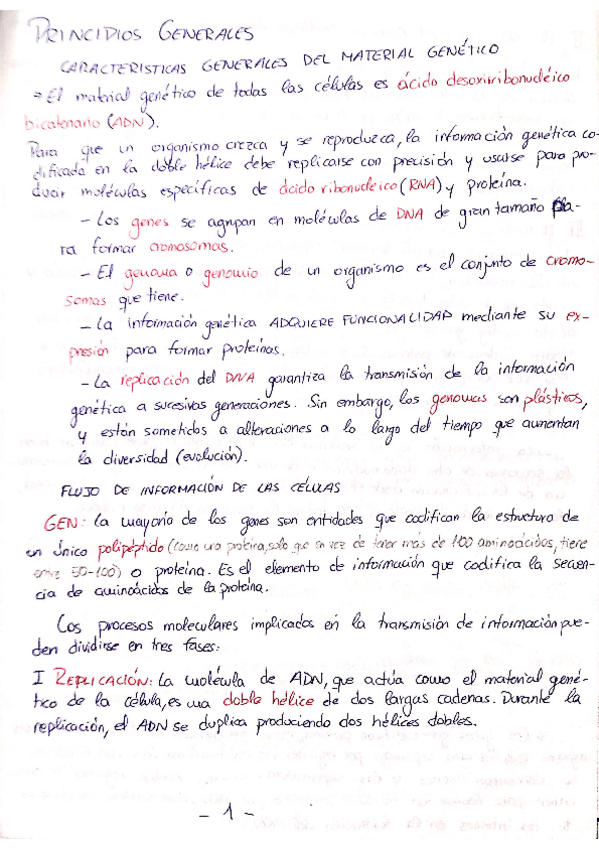 PRINCIPIOS GENERALES
CARACTERISTICAS GENERALES DEL MATERIAL GENÉTICO
⇒ El material genético de todas las células es ácido desoxirribonucléico
bicatenario (ADN).
Para que un organismo crezca y se reproduzca, la información genética co-
dificada en la doble hélice debe replicarse con precisión y usarse para pro-
ducir moléculas específicas de ácido ribonucleico (RNA) y proteína.
- Los genes se agrupan en moléculas de DNA de gran tamaño pa-
ra formar cromosomas.
- El genoma o genomio de un organismo es el conjunto de cromo-
somas que tiene.
- La información genética ADQUIERE FUNCIONALIDAD mediante su ex-
presión para formar proteínas.
- La replicación del DNA garantiza la transmisión de la información
genética a sucesivas generaciones. Sin embargo, los genomas son plásticos,
y están sometidos a alteraciones a lo largo del tiempo que aumentan
la diversidad (evolución).
FLUJO DE INFORMACIÓN DE LAS CÉLULAS
GEN: la mayoría de los genes son entidades que codifican la estructura de
un único polipéptido (como una proteína, solo que en vez de tener más de 100 aminoácidos, tiene
entre 50-100) o proteína. Es el elemento de información que codifica la secuen-
cia de aminoácidos de la proteína.
Los procesos moleculares implicados en la transmisión de información pue-
den dividirse en tres fases:
I REPLICACIÓN: La molécula de ADN, que actúa como el material gené-
tico de la célula, es una doble hélice de dos largas cadenas. Durante la
replicación, el ADN se duplica produciendo dos hélices dobles.
- 1 -